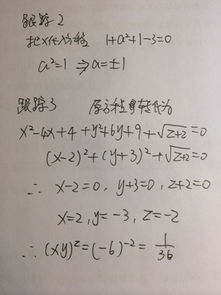 跟踪2
把x代入方程 1+a²+1-3=0
a²=1 ⇒a=±1
跟踪3 原方程可转化为
x²-4x+4+y²+6y+9+√z+2=0
(x-2)²+(y+3)²+√z+2=0
∴ x-2=0, y+3=0, z+2=0
x=2, y=-3, z=-2
∴ (xy)^z=(-6)^-2=1/36